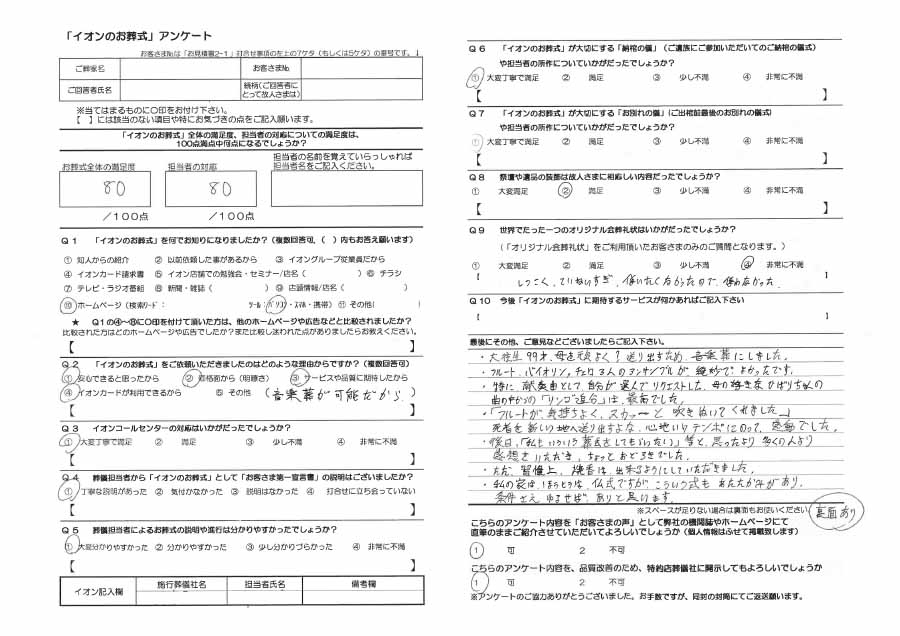 「イオンのお葬式」アンケート
お客さま№は「お見積書2-1」打合せ事項の左上の7ケタ（もしくは5ケタ）の番号です。
ご葬家名
お客さま№
ご回答者氏名
続柄(ご回答者にとって故人さまは)
※当てはまるものに〇印をお付け下さい。
【 】には該当のない項目や特にお気づきの点をご記入願います。
「イオンのお葬式」全体の満足度、担当者の対応についての満足度は、
100点満点中何点になるでしょうか？
お葬式全体の満足度
担当者の対応
担当者の名前を覚えていらっしゃれば
担当者名をご記入ください。
80
80
／100点
／100点
Q1 「イオンのお葬式」を何でお知りになりましたか？（複数回答可、( ）内もお答え願います）
① 知人からの紹介 ② 以前依頼した事があるから ③ イオングループ従業員だから
④ イオンカード請求書 ⑤ イオン店舗での勉強会・セミナー/店名 ( ) ⑥ チラシ
⑦ テレビ・ラジオ番組 ⑧ 新聞・雑誌 ( ) ⑨ 店頭情報/店名 ( )
⑩ ホームページ（検索ワード： ツール：パソコン・スマホ・携帯） ⑪ その他( )
★ Q1の④～⑩に〇印を付けて頂いた方は、他のホームページや広告などと比較されましたか？
比較された方はどのホームページや広告でしたか？また比較し迷われた点がありましたらお教えください。
【 】
Q2 「イオンのお葬式」をご依頼いただきましたのはどのような理由からですか？（複数回答可）
① 安心できると思ったから ② 価格面から（明瞭さ） ③ サービスや品質に期待したから
④ イオンカードが利用できるから ⑤ その他 （音楽葬が可能だから）
Q3 イオンコールセンターの対応はいかがでしたか？
① 大変丁寧で満足 ② 満足 ③ 少し不満 ④ 非常に不満
【 】
Q4 葬儀担当者から「イオンのお葬式」として「お客さま第一宣言書」の説明はございましたか？
① 丁寧な説明があった ② 気付かなかった ③ 説明はなかった ④ 打合せに立ち会っていない
【 】
Q5 葬儀担当者によるお葬式の説明や進行は分かりやすかったでしょうか？
① 大変分かりやすかった ② 分かりやすかった ③ 少し分かりづらかった ④ 非常に不満
【 】
イオン記入欄
施行葬儀社名
担当者氏名
備考欄
Q6 「イオンのお葬式」が大切にする「納棺の儀」（ご遺族にご参加いただいてのご納棺の儀式）
や担当者の所作についていかがだったでしょうか？
① 大変丁寧で満足 ② 満足 ③ 少し不満 ④ 非常に不満
【 】
Q7 「イオンのお葬式」が大切にする「お別れの儀」（ご出棺前最後のお別れの儀式）
や担当者の所作についていかがだったでしょうか？
① 大変丁寧で満足 ② 満足 ③ 少し不満 ④ 非常に不満
【 】
Q8 祭壇や遺品の装飾は故人さまに相応しい内容だったでしょうか？
① 大変満足 ② 満足 ③ 少し不満 ④ 非常に不満
【 】
Q9 世界でたった一つのオリジナル会葬礼状はいかがだったでしょうか？
（「オリジナル会葬礼状」をご利用頂いたお客さまのみのご質問となります。）
① 大変満足 ② 満足 ③ 少し不満 ④ 非常に不満
【しつこく、ていねいすぎ、使いたくなかったので、使わなかった】
Q10 今後「イオンのお葬式」に期待するサービスが何かあればご記入下さい
【 】
最後にその他、ご意見などございましたらご記入下さい。
・大往生99才、母を快よく？送り出すため、音楽葬にしました。
・フルート、バイオリン、チェロ3人のアンサンブルが絶妙でよかったです。
・特に、献奏曲として、自分が選んでリクエストした、母の好きな ひばりちゃんの
曲のなかの「リンゴ追分」は、最高でした。
・「フルートが気持ちよく、スカァーと吹きぬいてくれました」
死者を新しい地へ送り出すような、心地いいテンポにのって、感動でした。
・後日、「私もいういう葬式をしてもらいたい」等と、思ったより多くの人より
感想をいただき、ちょっとおどろきでした。
・ただ、習慣上、焼香は、出来るようにしていただきました。
・私の家は、ほうとうは、仏式ですが、こういう式もあたたか味があり、
条件さえゆるせば、ありと思います。
※スペースが足りない場合は裏面もお使いください
裏面あり
こちらのアンケート内容を「お客さまの声」として弊社の機関誌やホームページにて
直筆のままご紹介させていただいてよろしいでしょうか（個人情報はふせて掲載致します）
1 可 2 不可
こちらのアンケート内容を、品質改善のため、特約店葬儀社に開示してもよろしいでしょうか
1 可 2 不可
※アンケートのご協力ありがとうございました。お手数ですが、同封の封筒にてご返送願います。